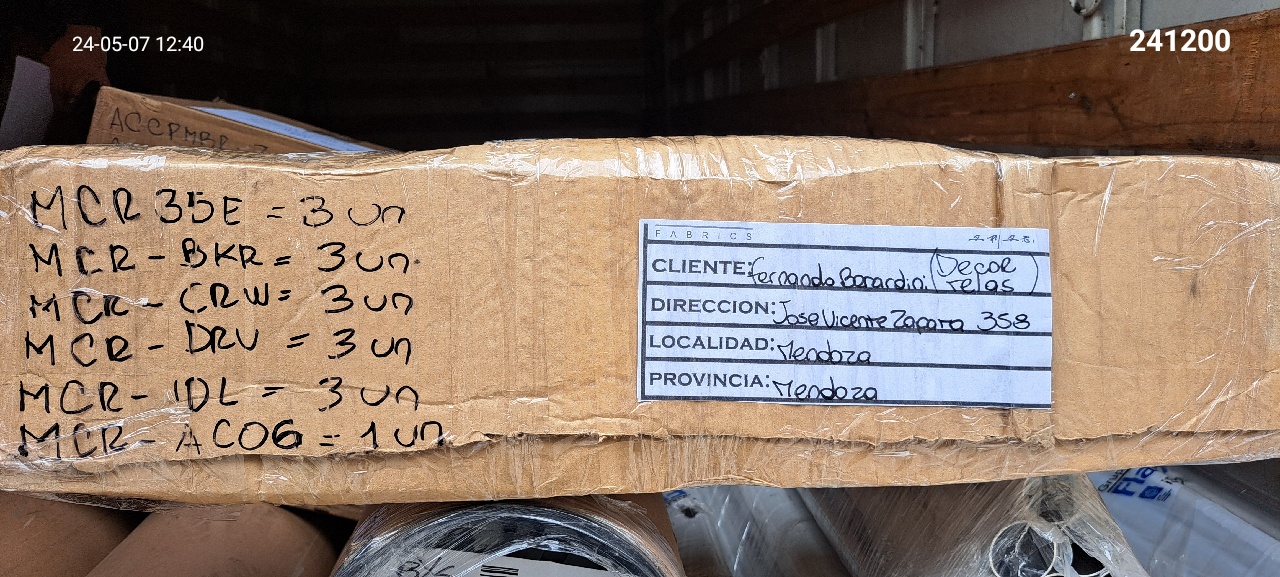 24-05-07 12:40
241200
ACCPMBR
MCR 35E = 3 un
MCR - BKR = 3 un.
MCR - CRW = 3 un
MCR - DRV = 3 un
MCR - IDL = 3 un
MCR - AC06 = 1 un
FABRICS
CLIENTE: Fernando Bonardini (Decor Telas)
DIRECCION: Jose Vicente Zapata 358
LOCALIDAD: Mendoza
PROVINCIA: Mendoza